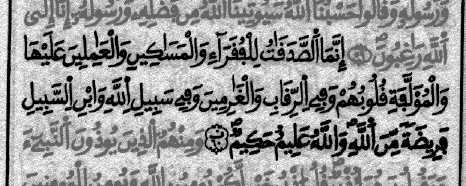 وَرَسُولُهُ وَقَالُوا حَسْبُنَا اللَّهُ سَيُؤْتِينَا اللَّهُ مِن فَضْلِهِ وَرَسُولُهُ إِنَّا إِلَى
اللَّهِ رَاغِبُونَ ۝ إِنَّمَا الصَّدَقَاتُ لِلْفُقَرَاءِ وَالْمَسَاكِينِ وَالْعَامِلِينَ عَلَيْهَا
وَالْمُؤَلَّفَةِ قُلُوبُهُمْ وَفِي الرِّقَابِ وَالْغَارِمِينَ وَفِي سَبِيلِ اللَّهِ وَابْنِ السَّبِيلِ
فَرِيضَةً مِّنَ اللَّهِ وَاللَّهُ عَلِيمٌ حَكِيمٌ ۝ وَمِنْهُمُ الَّذِينَ يُؤْذُونَ النَّبِيءَ